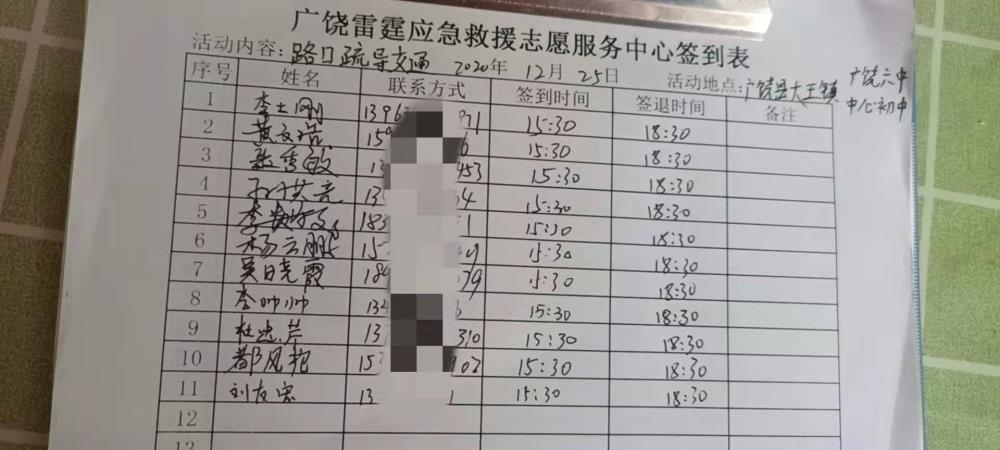 广饶雷霆应急救援志愿服务中心签到表
活动内容: 路口疏导交通 2020年 12月 25日 活动地点: 广饶县大王镇 广饶六中
中心初中
序号 姓名 联系方式 签到时间 签退时间 备注
1 李士刚 1396 871 15:30 18:30
2 黄文浩 159 6 15:30 18:30
3 秀敏 13 453 15:30 18:30
4 洪亮 139 64 15:30 18:30
5 李 183 1 15:30 18:30
6 杨云鹏 15 9 15:30 18:30
7 吴晓霞 18 79 15:30 18:30
8 李帅帅 134 15:30 18:30
9 杜忠芹 13 310 15:30 18:30
10 郝风艳 153 102 15:30 18:30
11 刘友忠 13 1 15:30 18:30
12
13